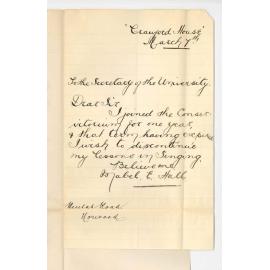 "Craword House"
March 7th
To the Secretary of the University
Dear Sir,
I joined the Conser-
vitorium for one year
& that term having expired
I wish to discontinue
my lessons in Singing
Believe me
Mabel E. Hall
Beulah Road
Norwood